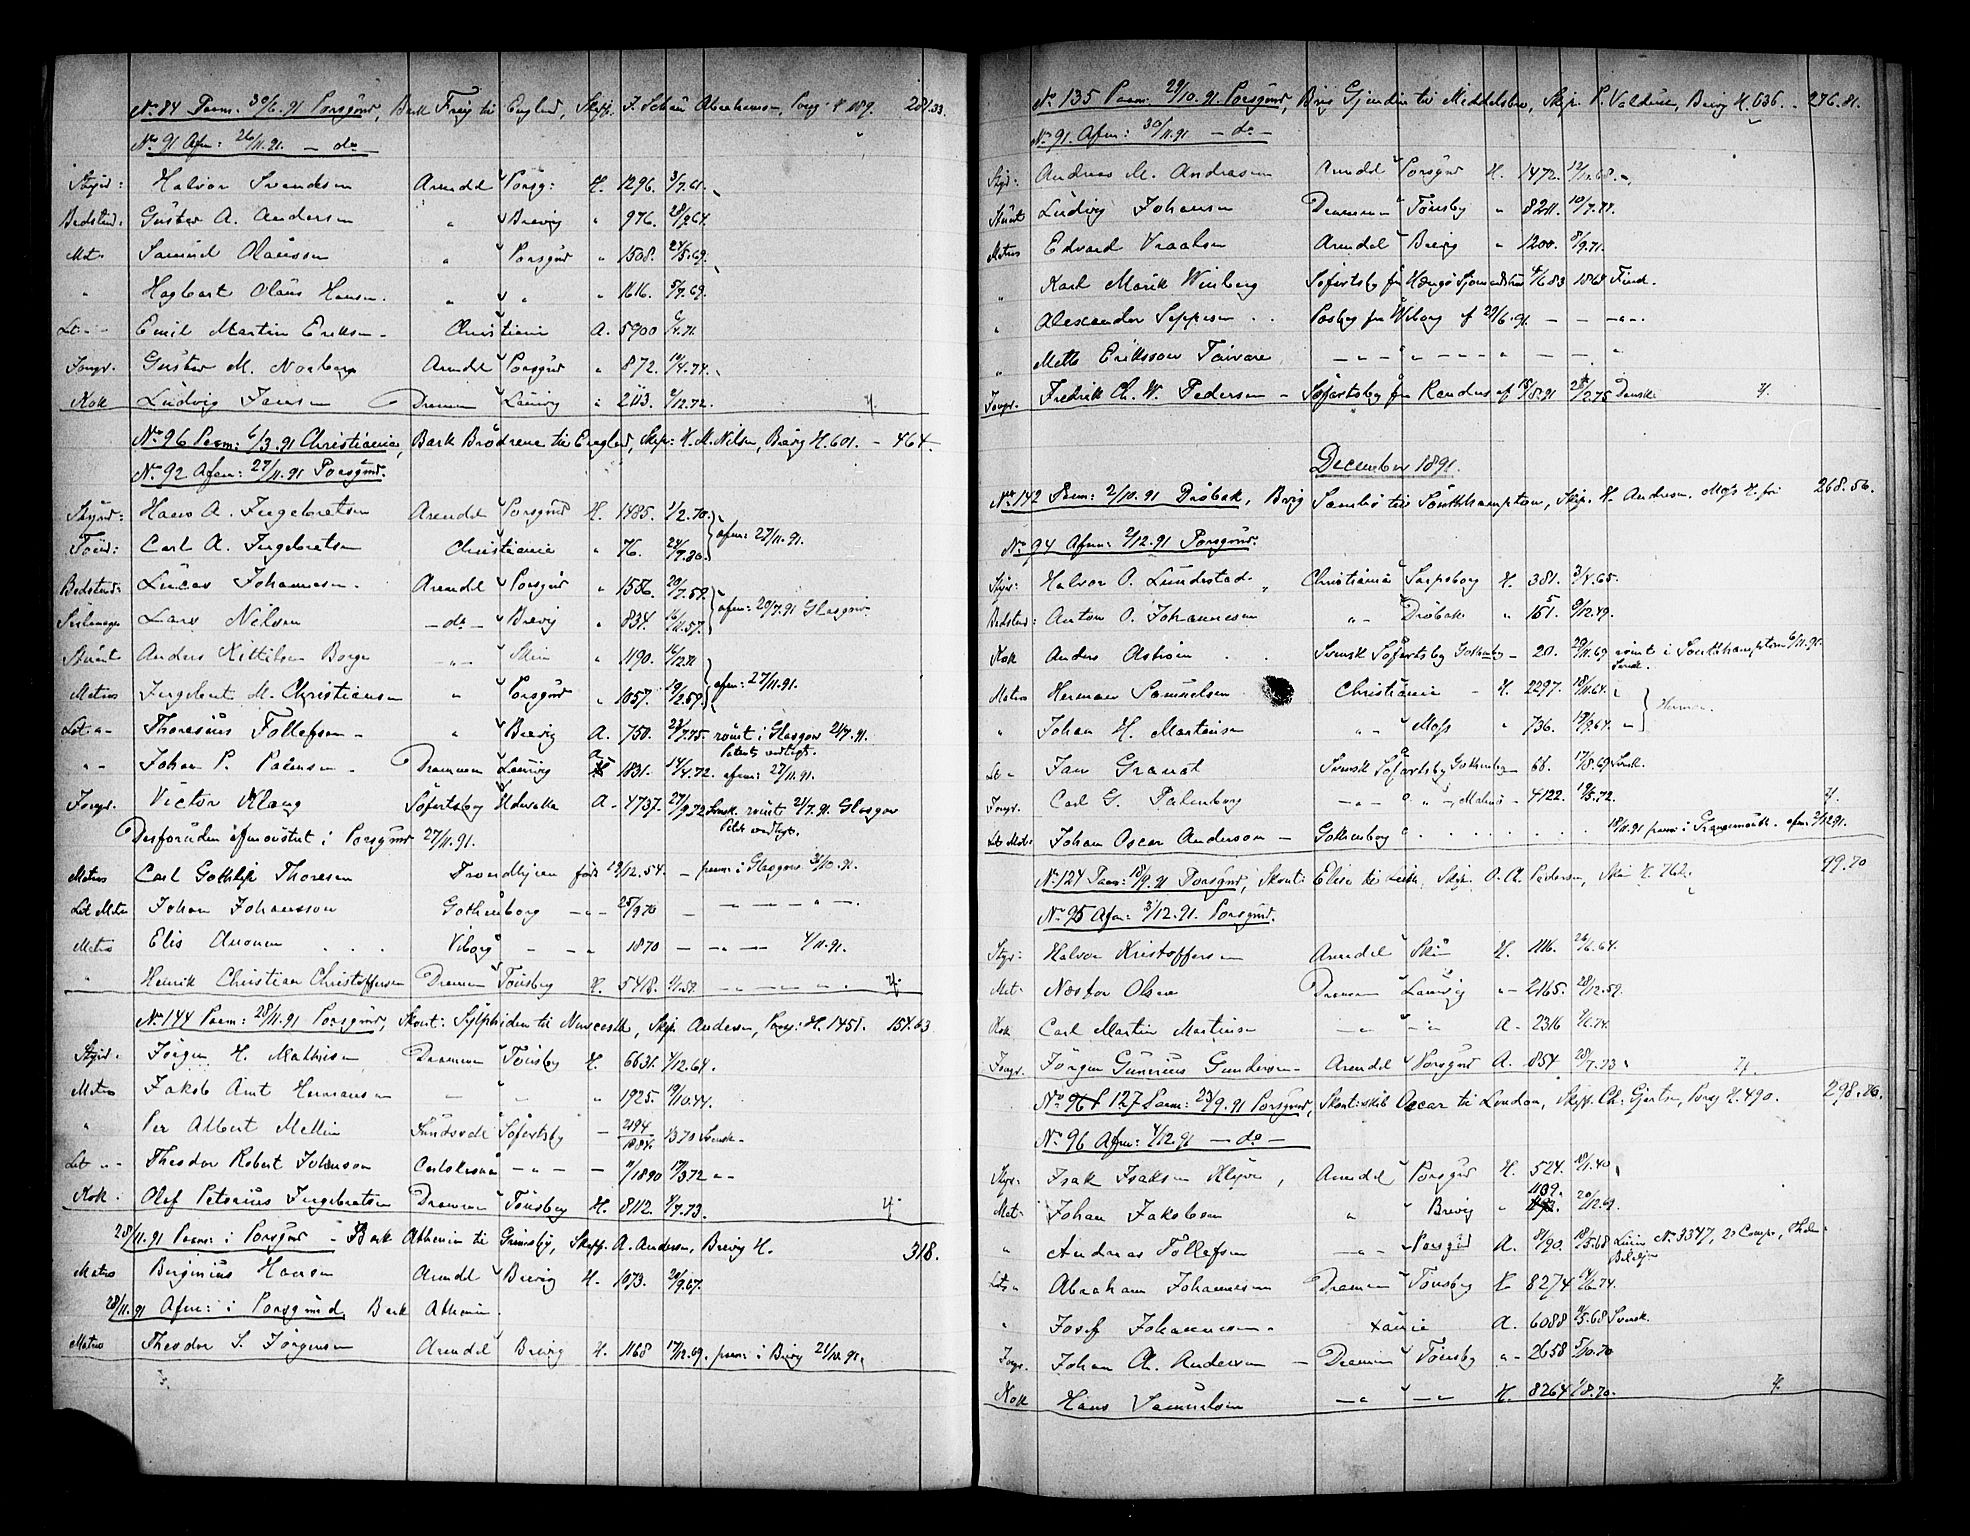 No 84 Paam: 30/6.91 Porsgrund, Bark Freig til England, Skipp. J. Schau Abrahamsen, Porsg. H 189.
No 91 Afm: 26/11.91. — do —
Styrd: Halvor Svendsen Arendal Porsg: H. 1296. 3/7.61.
Bedstmd: Gustav A. Andersen " Brevig " 976. 28/9.64.
Mat. Samuel Olaussen " Porsgrund " 1508. 24/5.69.
" Hagbart Olaus Hansen. " " " 1616. 5/7.69.
Let " Emil Martin Eriksen Christiania A. 5900 /4.71.
Jungm. Gustav M. Norberg Arendal Porsgrund " 872. 14/4.74.
Kok Ludvig Jansen Drammen Laurvig " 2113. /12.72. 7.
No 96 Paam: 6/3.91 Christiania, Bark Brödrene til England, Skip: N. M. Nilsen, Brevig H. 601. — 464.
No 92 Afm: 27/11.91 Porsgrund.
Styrd: Hans A. Ingebretsen Arendal Porsgrund H. 1485. /2.70.
Tömd: Carl A. Ingebretsen Christiania " 76. 24/7.30. afm: 27/11.91.
Bedstmd: Lucas Johannesen. Arendal Porsgrund " 1556. 20/7.59.
Seilmager Lars Nilsen — do — Brevig " 834. 16/11.57. afm: 20/7.91 Glasgow
Stuert Anders Kittilsen Borge — " — Skien " 1190. 16/12.71
Matros Ingebret M. Christiansen " Porsgrund " 1057. 19/12.59. afm: 27/11.91.
Let " Thorenius Tollefsen " Brevig A. 750. 23/7.75. römt i Glasgow 21/7.91.
Patents vedlagt.
" Johan P. Paulsen Drammen Laurvig A 1831. 14/4.72. afm: 27/11.91.
Jungm. Victor Klang Söfartsby Udevalla A. 4737. 27/9.72 Svensk. römt 21/7.91 Glasgow
Patent vedlagt.
Desforuden afmönstret i Porsgrund 27/11.91.
Matros Carl Gottlip Thoresen Trondhjem födt 19/12.54. — paam: i Glasgow 31/10.91.
Let Matr Johan Johansson Gothenborg — " — 25/9.70 — — " —
Matros Elis Auonen Viborg — " 1870 — " — 4/11.91.
" Henrik Christian Christoffersen Drammen Tönsberg H. 5418. /1.59. — " — 4.
No 144 Paam: 28/11.91 Porsgrund, Skont: Sylphiden til Newcastle, Skip. Andersen, Porsg: H. 1451. 154.63
Styrd. Jörgen H. Mathisen Drammen Tönsberg H. 6631. /12.64.
Matros Jakob Amt Hermansen — " " 1925. 19/10.44.
" Per Albert Mellin Sundsvall Söfartsby — 2194/1884 1870 Svensk
Let " Theodor Robert Johnson Carlskrona — " — /1890 17/3.72 "
Kok. Olaf Petorius Ingebretsen Drammen Tönsberg H. 8112. /7.73. 4.
28/11.91 Paam: i Porsgrund — Bark Athenin til Grimsby, Skipp. A. Andersen, Brevig H. 318.
Matros Berginius Hansen Arendal Brevig H. 1073. 20/9.67.
28/11.91 Afm: i Porsgrund, Bark Athenin.
Matros Theodor S. Jörgensen Arendal Brevig H. 1168 17/12.69. paam: i Brevig 21/10.91.
No 135 Paam. 29/10.91. Porsgrund, Brig Gjendin til Middelsbro, Skip. P. Valdsen, Brevig H. 636. — 276.81.
No 91. Afm: 30/11.91 — do —
Styrd: Andreas M. Andreasen Arendal Porsgrund H. 1472. 12/11.68.
Stuert Ludvig Johansen Drammen Tönsberg " 8211. 10/7.77.
Matros Edvard Vraalsen Arendal Brevig " 1200. 8/9.71.
" Karl Mörik Winberg Söfartsby fra Hangö Sjömandshus 4/6 83 1868 Finsk.
" Alexander Seppesen . . Pasby fra Wiborg af 29/6.91. — — " —
" Matts Eriksson Toivare — " —
Jungm. Fredrik Ch. W. Pedersen — Söfartsby fra Randers af 15/8.91 28/2.75 Dansk 7.
December 1891.
No 142 Paam: 2/10.91 Dröbak, Brig Sandö til Southhampton, Skip. H. Andresen, Moss H. fri 268.56.
No 94 Afm: 2/12.91 Porsgrund.
Styrd: Halvor O. Lundestad. Christiania Sarpsborg H. 381. 3/4.65.
Bedstmd: Anton O. Johannesen " Dröbak " 151. 9/12.49.
Kok Anders Aström . . Svensk Söfartsby Gothenborg — 20. 29/11.69 römt i Southhampton 6/11.91.
Svensk.
Matros Herman Samuelsen Christiania — H. 2297. 18/11.64.
" Johan H. Martinsen " Moss " 736. 19/9.64.
Let " Jan Granat Svensk Söfartsby Gothenborg — 66. 17/8.69 Svensk.
Jungm. Carl G. Palenborg — " — Malmö — 4122. 19/5.72. 4.
Let Mat: Johan Oscar Anderson — Gothenborg . . . . 18/11.91 paam: i Grangemouth. afm: 2/12.91.
No 124 Paam: 18/9.91 Porsgrund, Skont: Elise til Leith, Skip. O. A. Pedersen, Skien H. 762. 99.70
No 95 Afm: 3/12.91. Porsgrund.
Styr: Halvor Kristoffersen Arendal Skien H. 1116. 26/6.64.
Mat. Næstor Olsen Drammen Laurvig " 2165. 28/12.59.
Kok Carl Martin Martinsen — " — A. 2316 /6.74.
Jungm. Jörgen Gunerius Gundersen — Arendal Porsgrund A. 854 28/7.73 7.
No 127 Paam: 23/9.91 Porsgrund, Skont: skib Oscar til London, Skipp. Ch. Gjertsen, Porsg H. 490. 298.86.
No 96 Afm: 4/12.91 — do —
Styr. Isak Isaksen Klyve, Arendal Porsgrund H. 524. 18/1.40
Mat. Johan Jakobsen " Brevig " 1139. 20/12.69.
" Andreas Tollefsen — " — Porsgrund A. 8/90. 18/5.68 Linie No 3347, 2de Comp.,
Let " Abraham Johannesen Drammen Tönsberg H. 8274 14/6.74.
" Josef Johannesen. Xania A. 6088 4/5.68 Svensk.
Jungm. Johan A. Andersen — Drammen Tönsberg " 2658 5/10.70
Kok Hans Samuelsen — " — H. 8264 /8.70. 7.